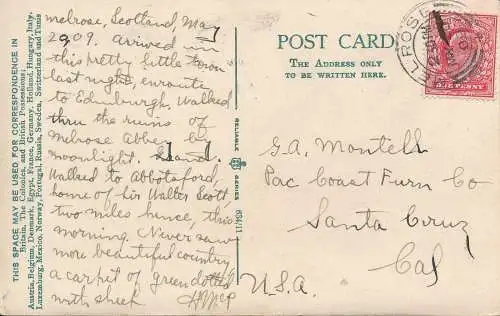 THIS SPACE MAY BE USED FOR CORRESPONDENCE IN
Britain, The Colonies, and British Possessions;
Austria, Belgium, Denmark, Egypt, France, Germany, Holland, Hungary, Italy,
Luxemburg, Mexico, Norway, Portugal, Russia, Sweden, Switzerland and Tunis
melrose, Scotland, May
2 09. Arived in
this pretty little town
last night, enroute
to Edinburgh, Walked
thru the ruins of
Melrose Abbey by
moonlight.
Walked to Abbotsford,
home of Sir Walter Scott
two miles hence, this
morning. Never saw
more beautiful country
a carpet of green dotted
with sheep
RELIABLE
SERIES
POST CARD
THE ADDRESS ONLY
TO BE WRITTEN HERE.
MELROSE
ONE PENNY
G.A. Montell
Pac Coast Furn Co
Santa Cruz
Cal
U.S.A.